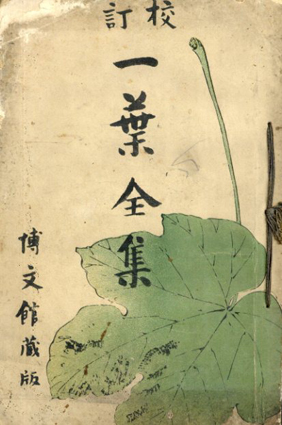 校訂
一葉全集
博文館蔵版